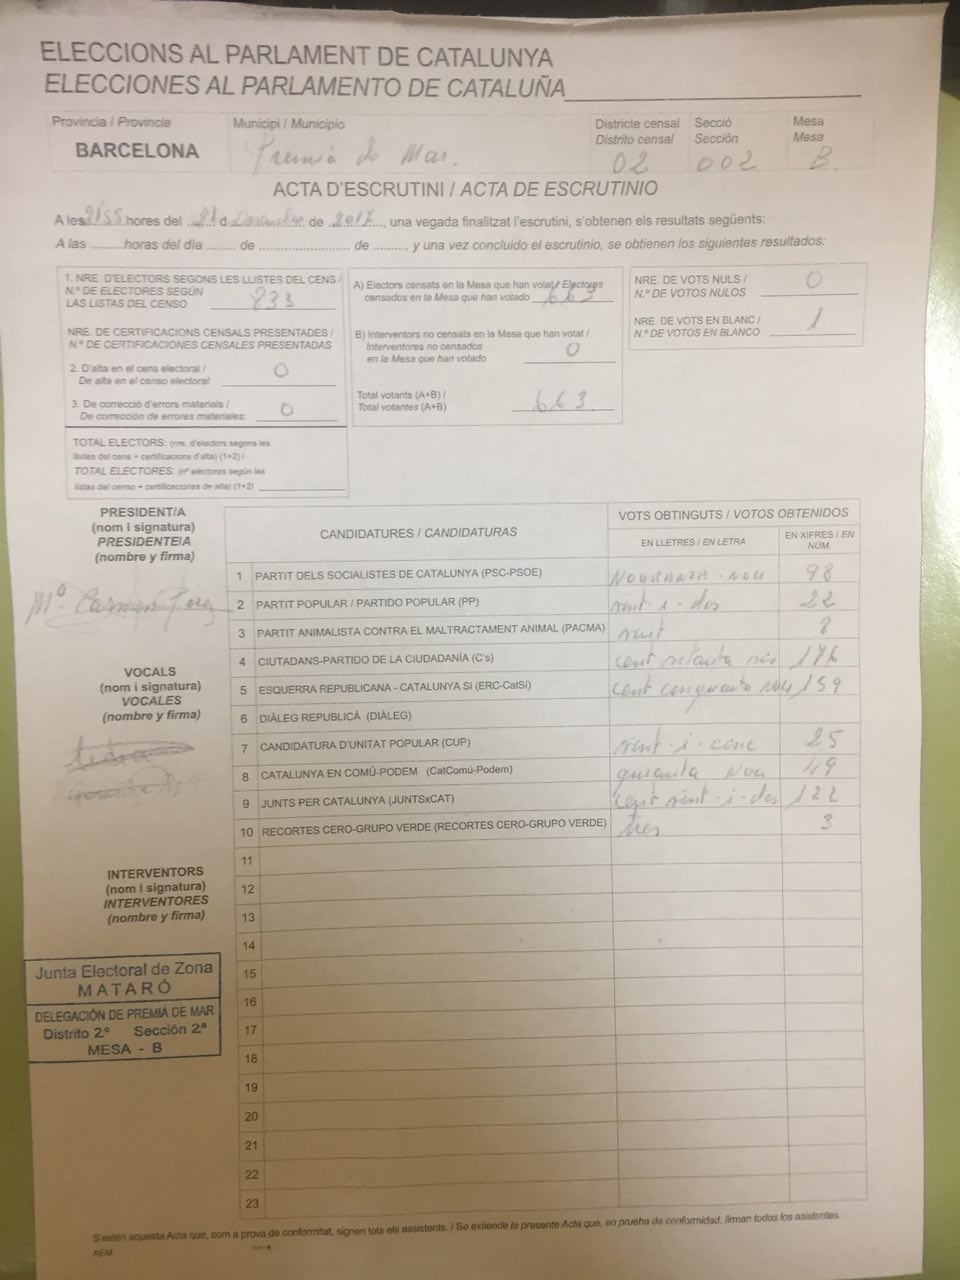 ELECCIONS AL PARLAMENT DE CATALUNYA
ELECCIONES AL PARLAMENTO DE CATALUÑA
Província / Provincia
BARCELONA
Municipi / Municipio
Premià de Mar.
Districte censal
Distrito censal
02
Secció
Sección
002
Mesa
Mesa
B
ACTA D'ESCRUTINI / ACTA DE ESCRUTINIO
A les 21'55 hores del 21 d de 2017, una vegada finalitzat l'escrutini, s'obtenen els resultats següents:
A las ......... horas del día ....... de ...................... de ........, y una vez concluido el escrutinio, se obtienen los siguientes resultados:
1. NRE. D'ELECTORS SEGONS LES LLISTES DEL CENS /
N.º DE ELECTORES SEGÚN
LAS LISTAS DEL CENSO 833
NRE. DE CERTIFICACIONS CENSALS PRESENTADES /
N.º DE CERTIFICACIONES CENSALES PRESENTADAS
2. D'alta en el cens electoral /
De alta en el censo electoral: 0
3. De correcció d'errors materials /
De corrección de errores materiales: 0
TOTAL ELECTORS: (nre. d'electors segons les
llistes del cens + certificacions d'alta) (1+2) /
TOTAL ELECTORES: (nº electores según las
listas del censo + certificaciones de alta) (1+2)
A) Electors censats en la Mesa que han votat / Electores
censados en la Mesa que han votado 663
B) Interventors no censats en la Mesa que han votat /
Interventores no censados
en la Mesa que han votado 0
Total votants (A+B) /
Total votantes (A+B) 663
NRE. DE VOTS NULS /
N.º DE VOTOS NULOS 0
NRE. DE VOTS EN BLANC /
N.º DE VOTOS EN BLANCO 1
PRESIDENT/A
(nom i signatura)
PRESIDENTE/A
(nombre y firma)
Mª Carmen
VOCALS
(nom i signatura)
VOCALES
(nombre y firma)
INTERVENTORS
(nom i signatura)
INTERVENTORES
(nombre y firma)
Junta Electoral de Zona
MATARÓ
DELEGACIÓN DE PREMIÀ DE MAR
Distrito 2º Sección 2ª
MESA - B
CANDIDATURES / CANDIDATURAS
VOTS OBTINGUTS / VOTOS OBTENIDOS
EN LLETRES / EN LETRA
EN XIFRES / EN NÚM.
1 PARTIT DELS SOCIALISTES DE CATALUNYA (PSC-PSOE) 98
2 PARTIT POPULAR / PARTIDO POPULAR (PP) vint-i-dos 22
3 PARTIT ANIMALISTA CONTRA EL MALTRACTAMENT ANIMAL (PACMA) vuit 8
4 CIUTADANS-PARTIDO DE LA CIUDADANÍA (C's) cent setanta sis 176
5 ESQUERRA REPUBLICANA - CATALUNYA SÍ (ERC-CatSí) cent cinquanta nou 159
6 DIÀLEG REPUBLICÀ (DIÀLEG)
7 CANDIDATURA D'UNITAT POPULAR (CUP) vint-i-cinc 25
8 CATALUNYA EN COMÚ-PODEM (CatComú-Podem) nou 49
9 JUNTS PER CATALUNYA (JUNTSxCAT) cent vint-i-dos 122
10 RECORTES CERO-GRUPO VERDE (RECORTES CERO-GRUPO VERDE) tres 3
11
12
13
14
15
16
17
18
19
20
21
22
23
S'estén aquesta Acta que, com a prova de conformitat, signen tots els assistents. / Se extiende la presente Acta que, en prueba de conformidad, firman todos los asistentes.
AEM